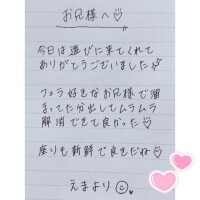 お兄様へ♡
今日は遊びに来てくれて
ありがとうございました☆
フェラ好きなお兄様で溜
まってた分出してムラムラ
解消できて良かった♡
座りも新鮮で良きだね♡
えまより